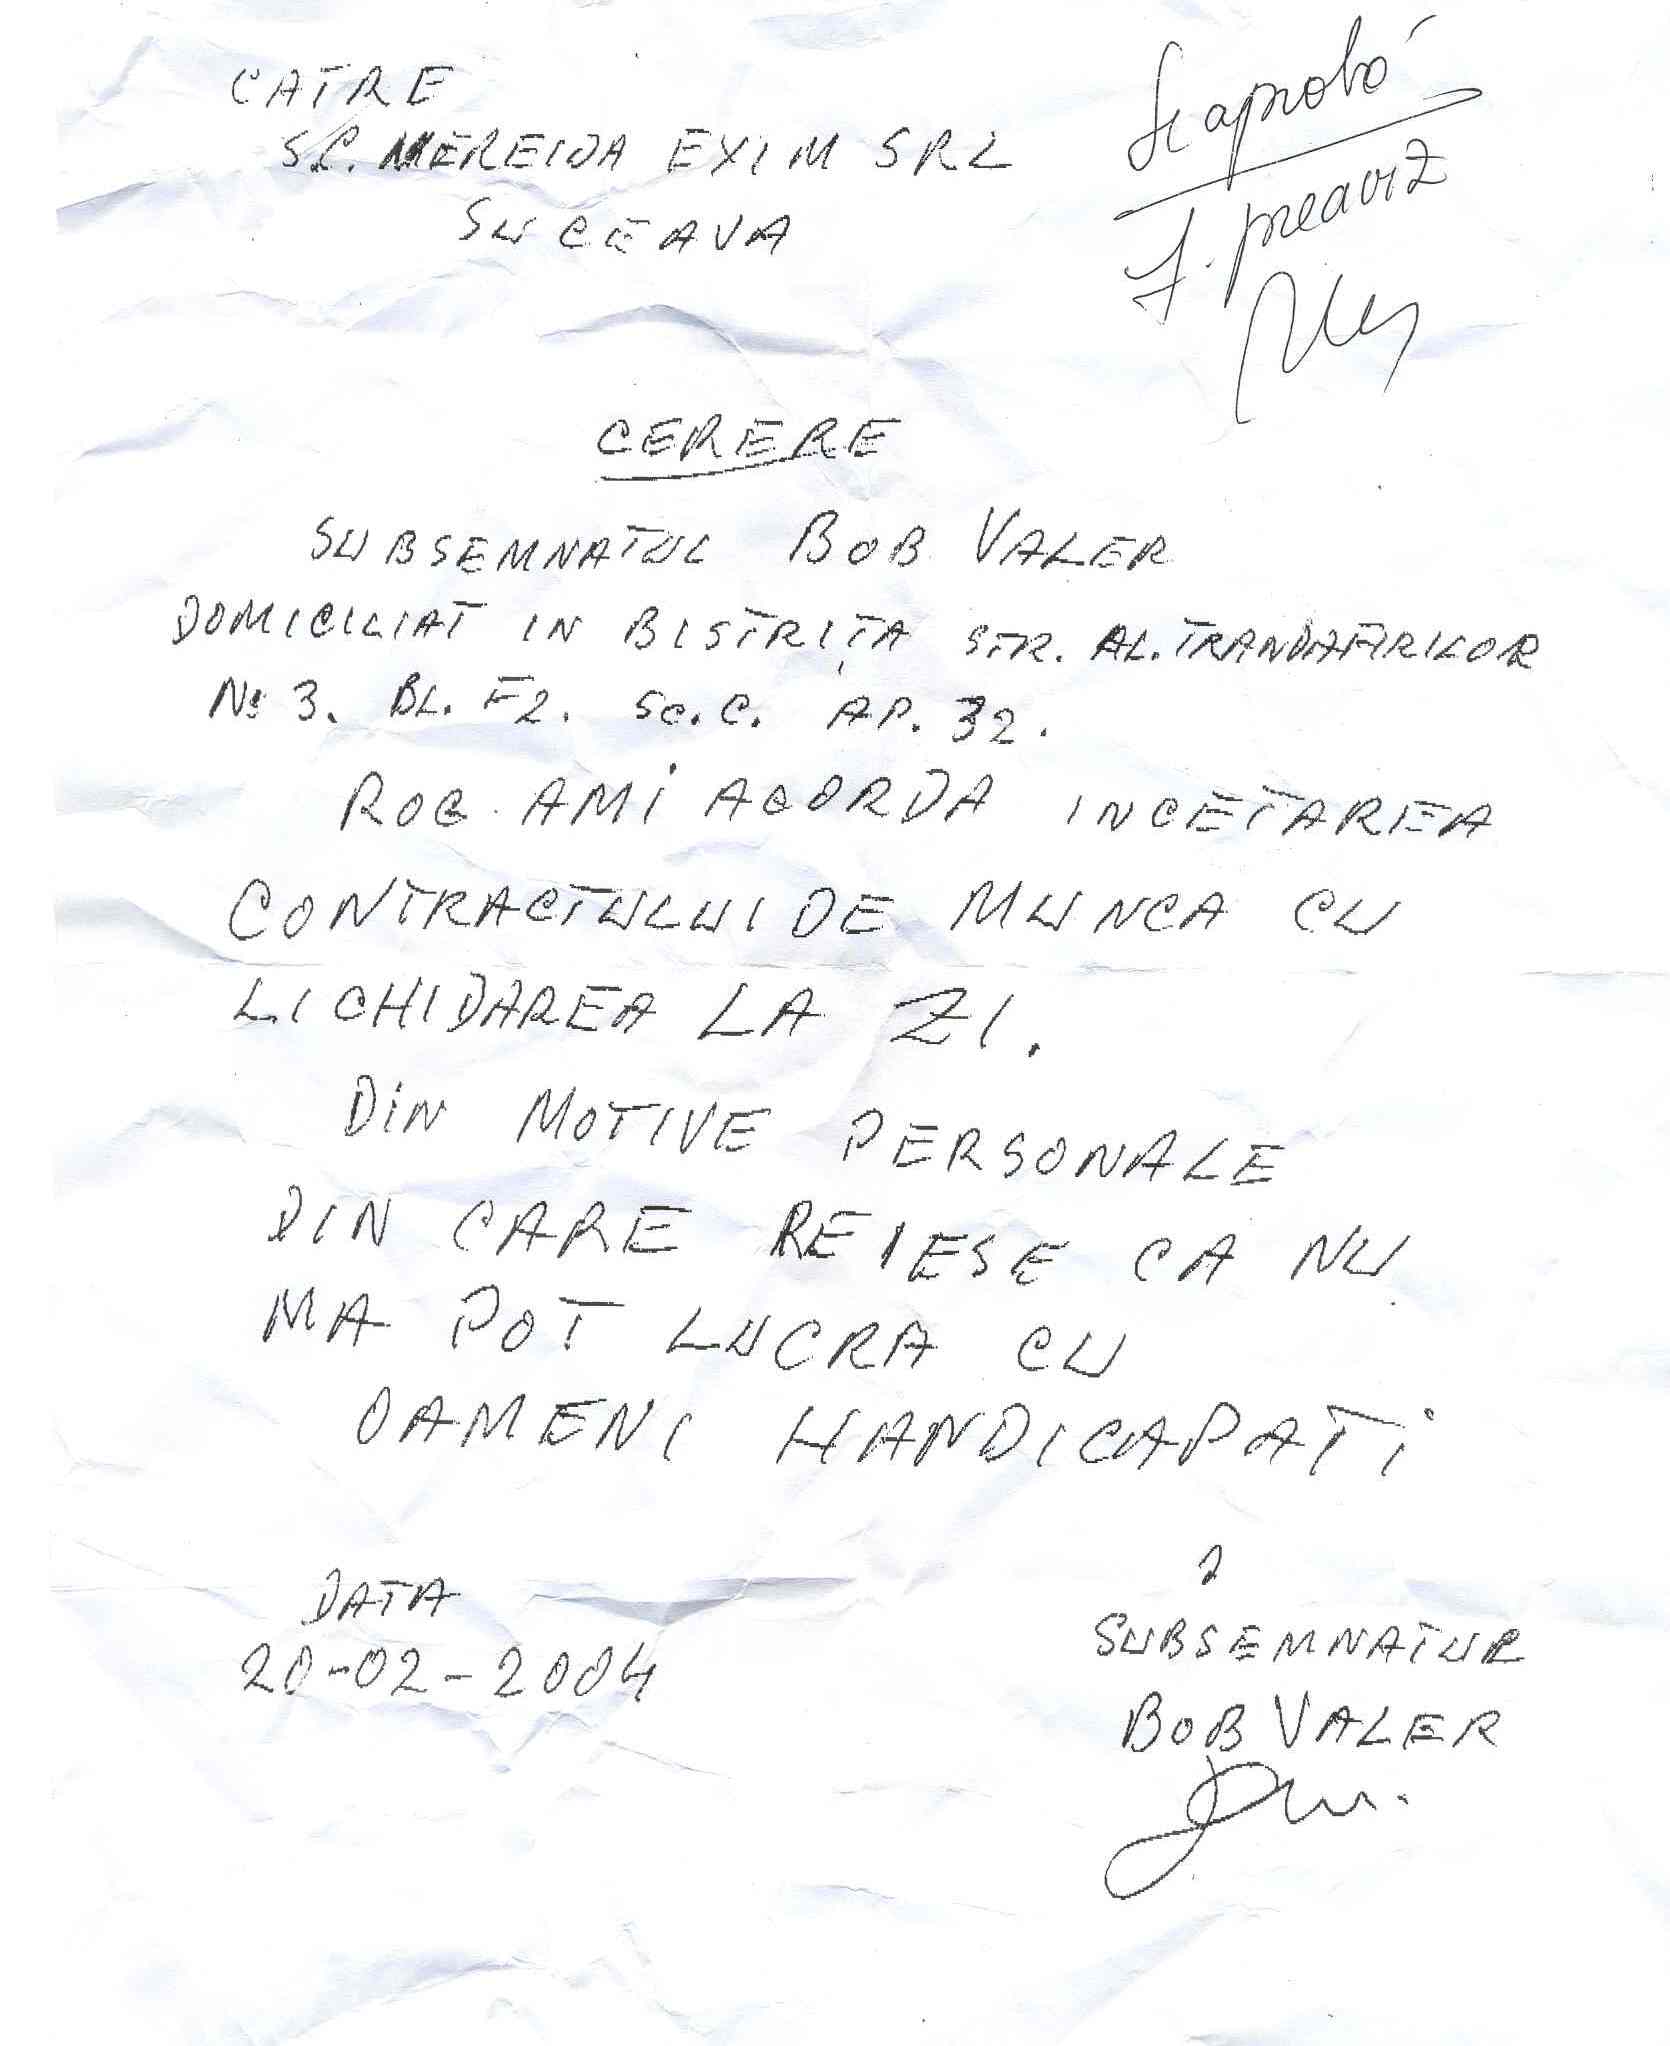 CATRE
SC. MEREIDA EXIM SRL
SUCEAVA
Se aprobă
f. preaviz
CERERE
SUBSEMNATUL BOB VALER
DOMICILIAT IN BISTRIȚA STR. AL. TRANDAFIRILOR
No 3. BL. F2. SC. C. AP. 32.
ROG AMI ACORDA INCETAREA
CONTRACTULUI DE MUNCA CU
LICHIDAREA LA ZI.
DIN MOTIVE PERSONALE
DIN CARE REIESE CA NU
MA POT LUCRA CU
OAMENI HANDICAPATI
DATA
20-02-2004
SUBSEMNATUL
BOB VALER